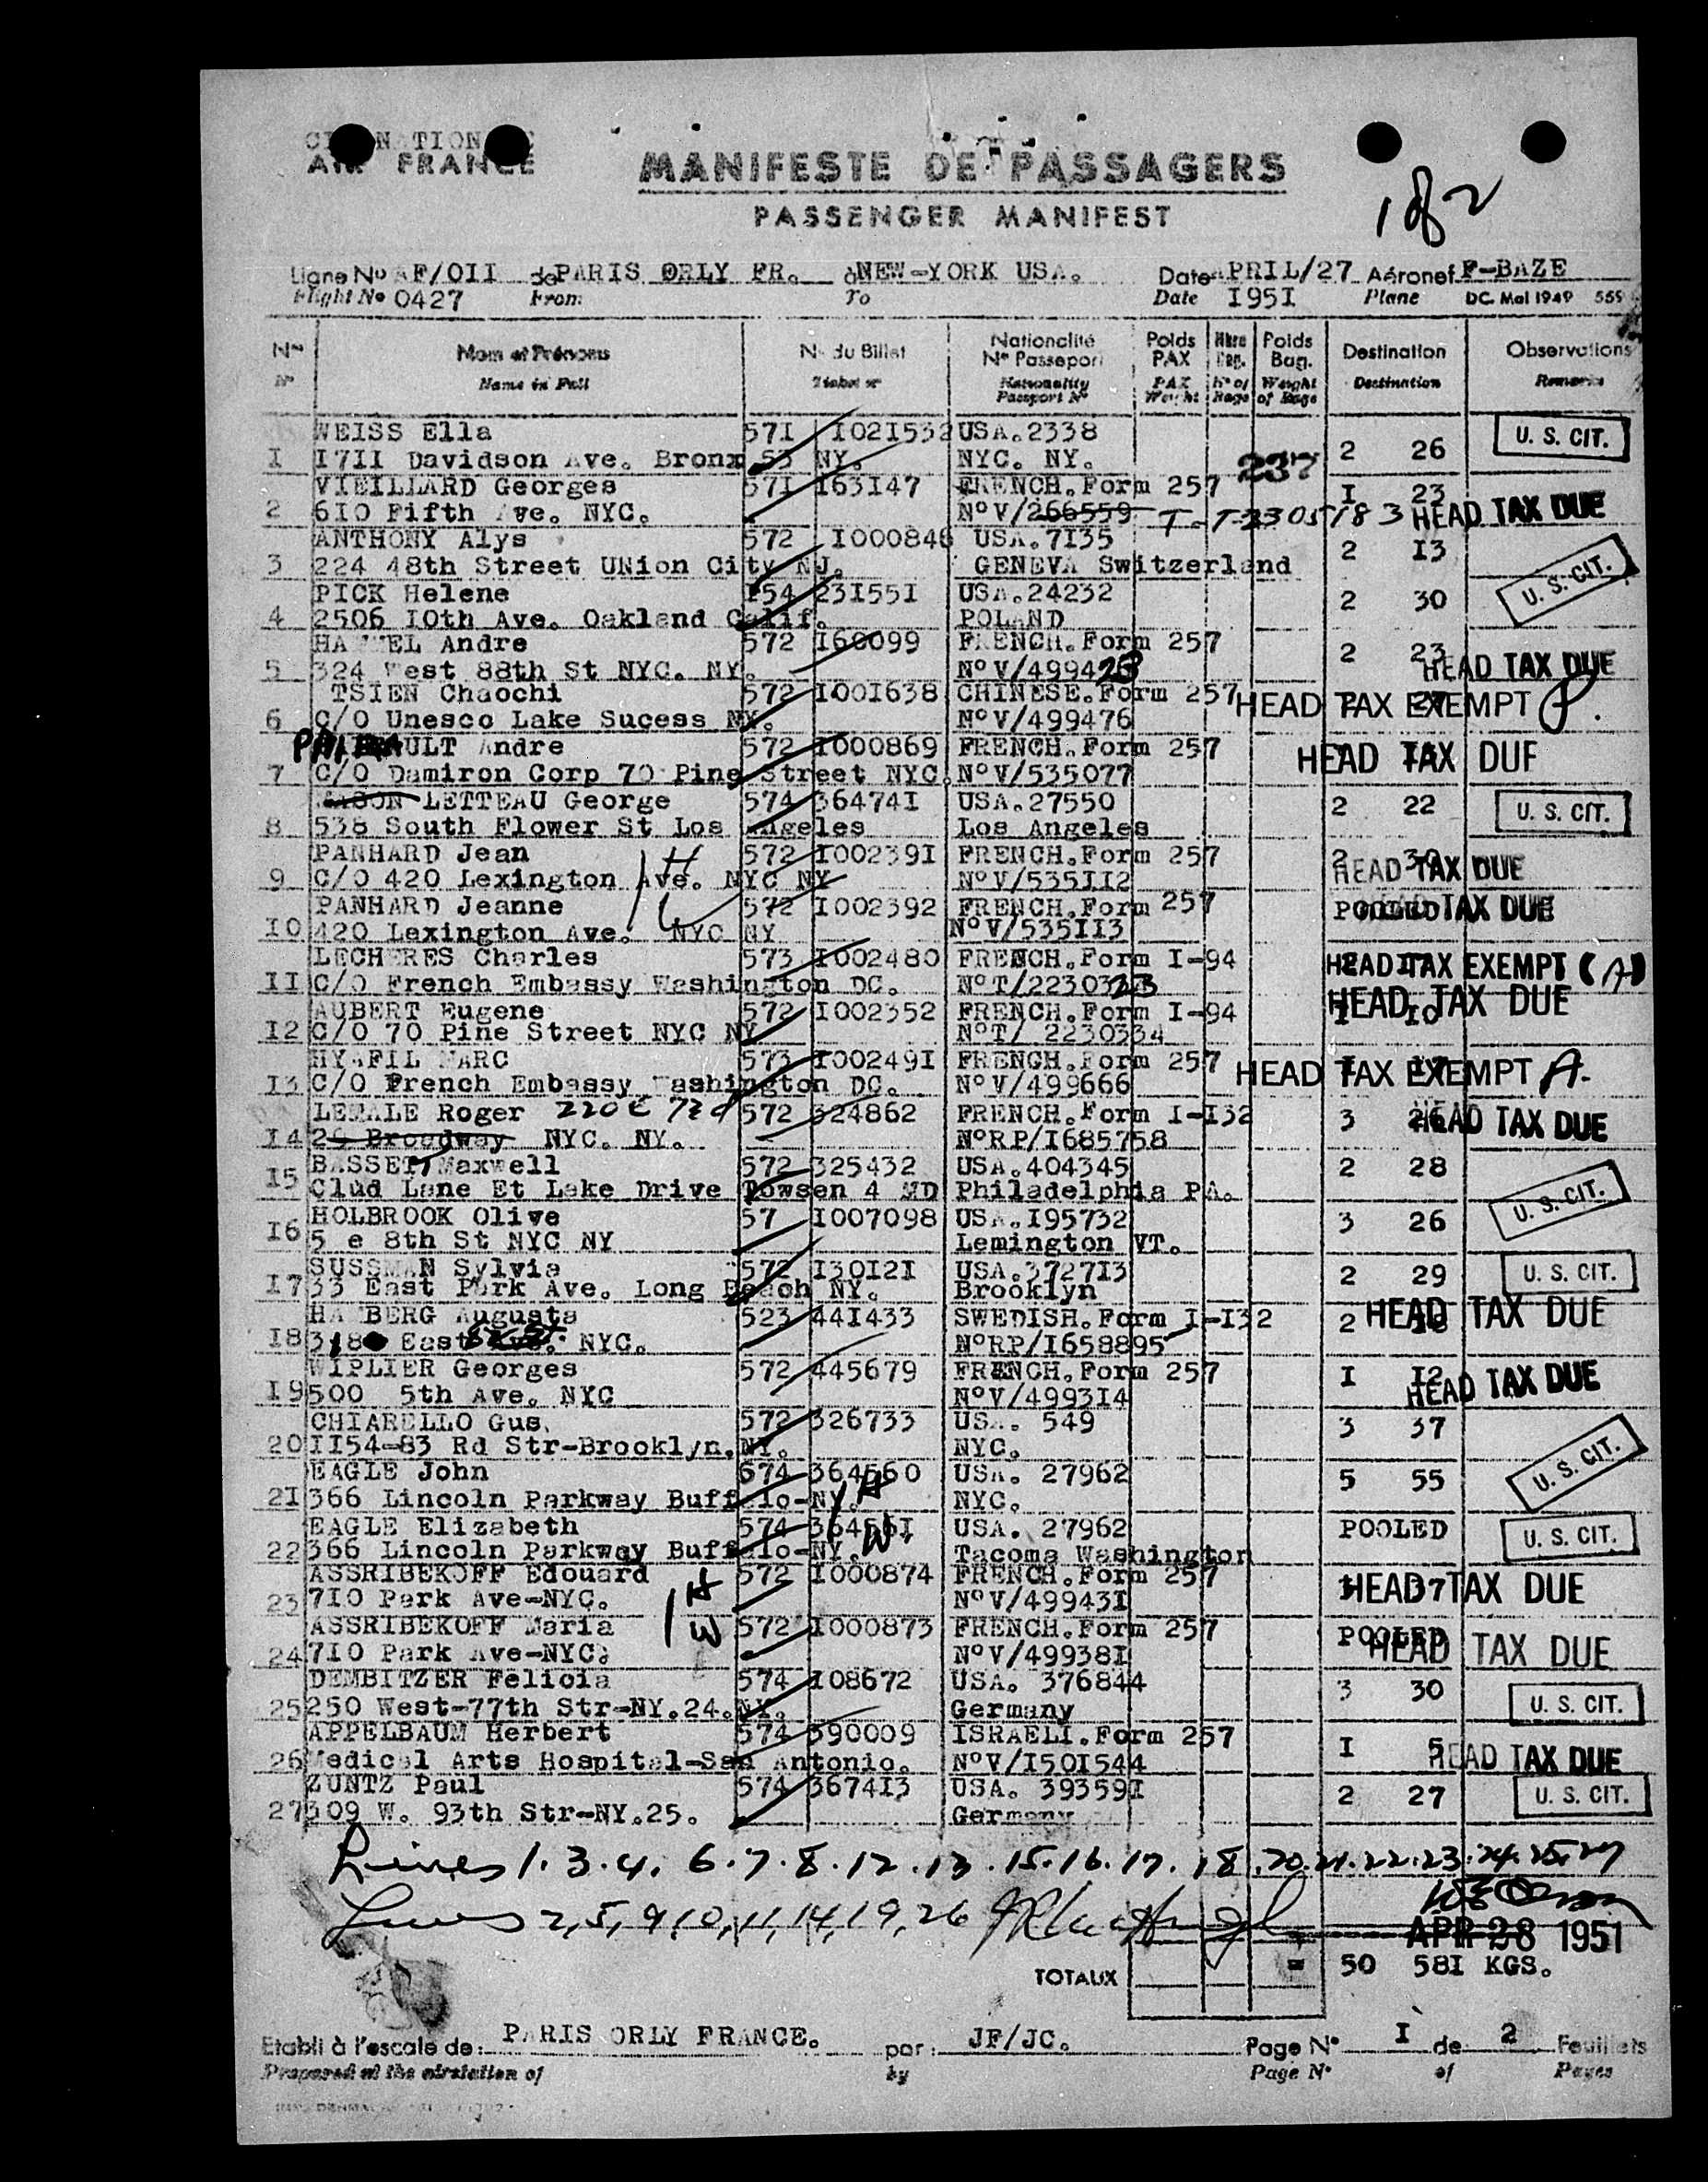 AIR FRANCE
MANIFESTE DE PASSAGERS
PASSENGER MANIFEST
1 of 2
Ligne No AF/OII de PARIS ORLY FR. à NEW-YORK USA. Date APRIL/27 Aéronef F-BAZE
Flight No 0427 From To Date I95I Plane DC. Mol 1949 559
Nos Nom et Prénoms No du Billet Nationalité No Passeport Poids PAX Nbre Bag. Poids Bag. Destination Observations
No Name in Full Ticket no Nationality Passport No PAX Weight No of Bags Weight of Bags Destination Remarks
WEISS Ella 57I I02I532 USA.2338 U. S. CIT.
I I7II Davidson Ave. Bronx 53 NY. NYC. NY. 2 26
VIEILLARD Georges 57I I63I47 FRENCH.Form 257 237 I 23
2 6I0 Fifth Ave. NYC. No V/266559 T-T-2305183 HEAD TAX DUE
ANTHONY Alys 572 I000846 USA.7I35 2 I3
3 224 48th Street UNion City NJ. GENEVA Switzerland U. S. CIT.
PICK Helene I54 23I55I USA.24232 2 30
4 2506 IOth Ave. Oakland Calif. POLAND
HAMEL Andre 572 I60099 FRENCH.Form 257 2 23
5 324 West 88th St NYC. NY. No V/499423 HEAD TAX DUE
TSIEN Chaochi 572 I00I638 CHINESE.Form 257 HEAD TAX EXEMPT
6 C/O Unesco Lake Sucess NY. No V/499476
AULT Andre 572 I000869 FRENCH.Form 257 HEAD TAX DUE
7 C/O Damiron Corp 70 Pine Street NYC. No V/535077
MASON LETTEAU George 574 36474I USA.27550 2 22 U. S. CIT.
8 538 South Flower St Los Angeles Los Angeles
PANHARD Jean 572 I00239I FRENCH.Form 257 2 30 HEAD TAX DUE
9 C/O 420 Lexington Ave. NYC NY No V/535II2 1 H
PANHARD Jeanne 572 I002392 FRENCH.Form 257 POOLED HEAD TAX DUE
IO 420 Lexington Ave. NYC NY No V/535II3 1 W
LECHERES Charles 573 I002480 FRENCH.Form I-94 HEAD TAX EXEMPT (A)
II C/O French Embassy Washington DC. No T/2230323
AUBERT Eugene 572 I002352 FRENCH.Form I-94 HEAD TAX DUE
I2 C/O 70 Pine Street NYC NY No T/ 2230334 I IO
HYAFIL MARC 573 I00249I FRENCH.Form 257 HEAD TAX EXEMPT A.
I3 C/O French Embassy Washington DC. No V/499666
LEMALE Roger 220 E 72d 572 324862 FRENCH.Form I-I32 3 26 HEAD TAX DUE
I4 26 Broadway NYC. NY. No RP/I685758
BASSETT Maxwell 572 325432 USA.404345 2 28
I5 Clud Lane Et Lake Drive Towsen 4 MD Philadelphia PA. U. S. CIT.
HOLBROOK Olive 57 I007098 USA.I95732 3 26
I6 5 e 8th St NYC NY Lemington VT.
SUSSMAN Sylvia 572 I30I2I USA.3727I3 2 29 U. S. CIT.
I7 33 East Park Ave. Long Beach NY. Brooklyn
HAMBERG Augusta 523 44I433 SWEDISH.Form I-I32 2 I8 HEAD TAX DUE
I8 318 East NYC. No RP/I658895
WIPLIER Georges 572 445679 FRENCH.Form 257 I I2 HEAD TAX DUE
I9 500 5th Ave. NYC No V/4993I4
CHIARELLO Gus. 572 326733 USA. 549 3 37
20 II54-83 Rd Str-Brooklyn.NY. NYC. U. S. CIT.
EAGLE John 574 364560 USA. 27962 5 55
2I 366 Lincoln Parkway Buffalo-NY. 1 H NYC.
EAGLE Elizabeth 574 36456I USA. 27962 POOLED U. S. CIT.
22 366 Lincoln Parkway Buffalo-NY. W Tacoma Washington
ASSRIBEKOFF Edouard 572 I000874 FRENCH.Form 257 3 37 HEAD TAX DUE
23 7I0 Park Ave-NYC. 1 H No V/49943I
ASSRIBEKOFF Maria 1 W 572 I000873 FRENCH.Form 257 POOLED HEAD TAX DUE
24 7I0 Park Ave-NYC. No V/49938I
DEMBITZER Felicia 574 I08672 USA. 376844 3 30 U. S. CIT.
25 250 West-77th Str-NY.24.NY. Germany
APPELBAUM Herbert 574 390009 ISRAELI.Form 257 I 5 HEAD TAX DUE
26 Medical Arts Hospital-San Antonio. No V/I50I544
ZUNTZ Paul 574 3674I3 USA. 39359I 2 27 U. S. CIT.
27 309 W. 93th Str-NY.25. Germany
Lines 1.3.4. 6.7.8.12.13.15.16.17.18.20.21.22.23.24.25.27
Lines 2,5,9,10,11,14,19,26
APR 28 1951
TOTAUX = 50 58I KGS.
Etabli à l'escale de: PARIS ORLY FRANCE. par: JF/JC. Page No I de 2 Feuillets
Prepared at the airstation of by Page No of Pages